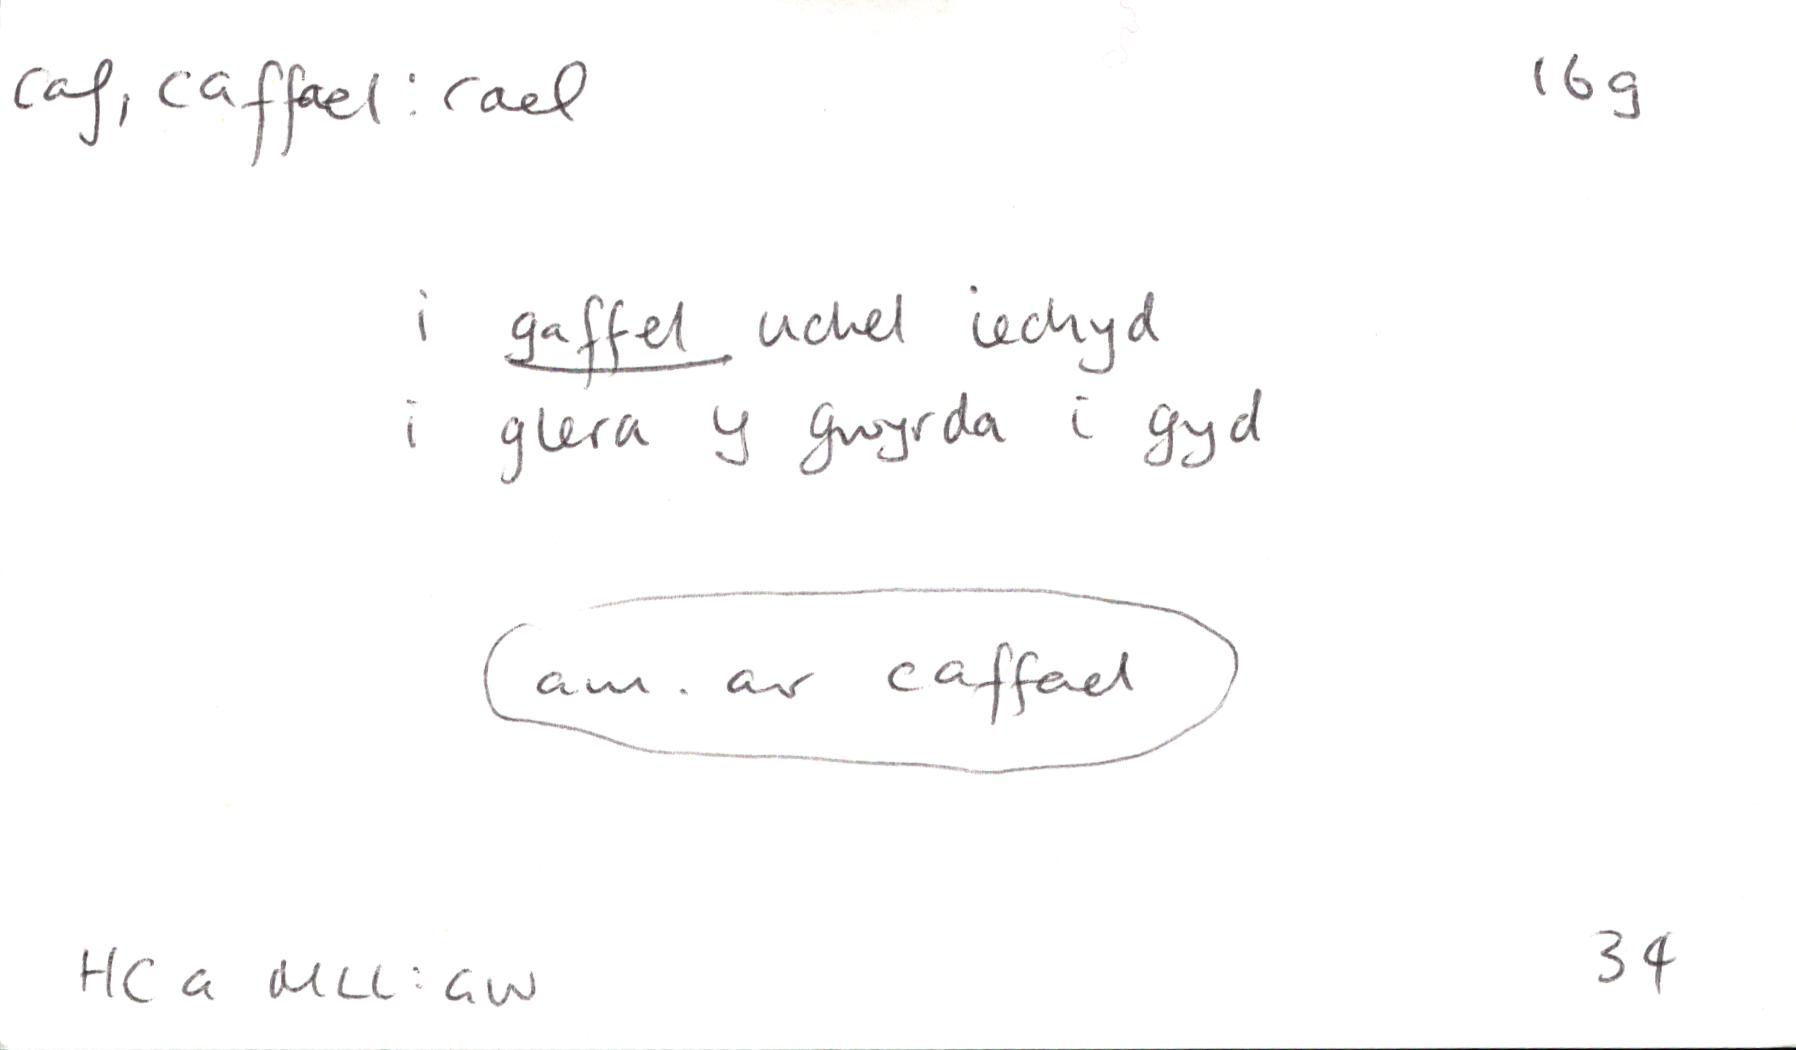 caf, caffael: cael 16g
i gaffel uchel iechyd
i glera y gwyrda i gyd
am. ar caffael
HC a MLl: GW 34